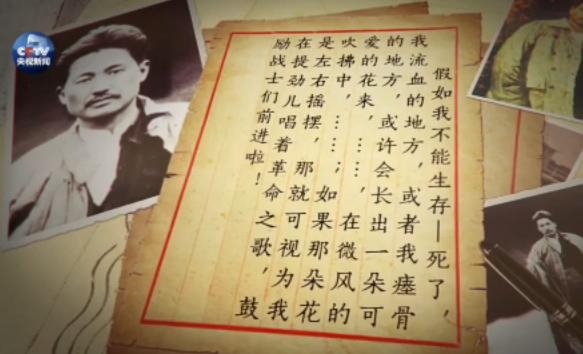 CCTV
央视新闻
假如我不能生存—死了，
我流血的地方，或者我瘗骨
的地方，或许会长出一朵可
爱的花来，……，在微风的
吹拂中，……；如果那朵花
是左右摇摆，那就可视为我
在提劲儿唱着革命之歌，鼓
励战士们前进啦！